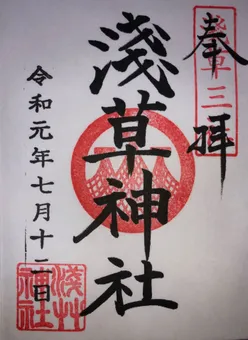 奉拝
草三
淺草神社
令和元年七月十二日
淺艸
神社